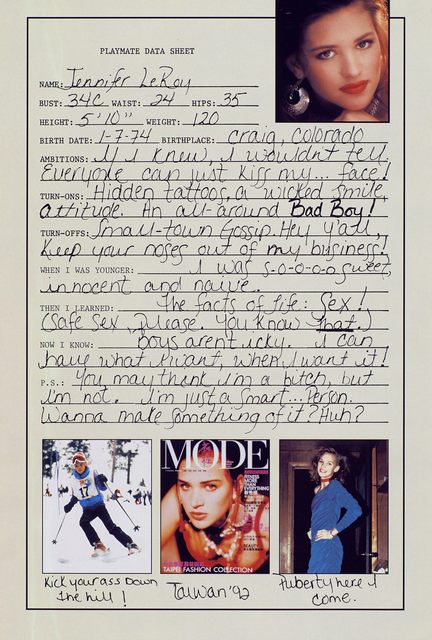 PLAYMATE DATA SHEET
NAME: Jennifer LeRoy
BUST: 34C WAIST: 24 HIPS: 35
HEIGHT: 5'10" WEIGHT: 120
BIRTH DATE: 1-7-74 BIRTHPLACE: Craig, Colorado
AMBITIONS: If I knew, I wouldn't tell.
Everyone can just kiss my... face!
TURN-ONS: Hidden tattoos, a wicked smile,
attitude. An all-around Bad Boy!
TURN-OFFS: Small-town Gossip. Hey y'all,
Keep your noses out of my business!
WHEN I WAS YOUNGER: I was s-o-o-o-o sweet,
innocent and naive.
THEN I LEARNED: The facts of life: Sex!
(Safe Sex, Please. You Know that.)
NOW I KNOW: Boys aren't icky. I can
have what I want, when I want it!
P.S.: You may think I'm a bitch, but
I'm not. I'm just a Smart... Person.
Wanna make something of it? Huh?
17
MODE
FITNESS
MORE
THAN
EVERYTHING
BEAUTY
TAIPEI FASHION COLLECTION
Kick your ass Down
the hill!
Taiwan '92
Puberty here I
come.